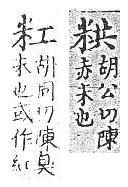 粠
胡公切陳
赤米也
胡同切陳臭
米也或作紅